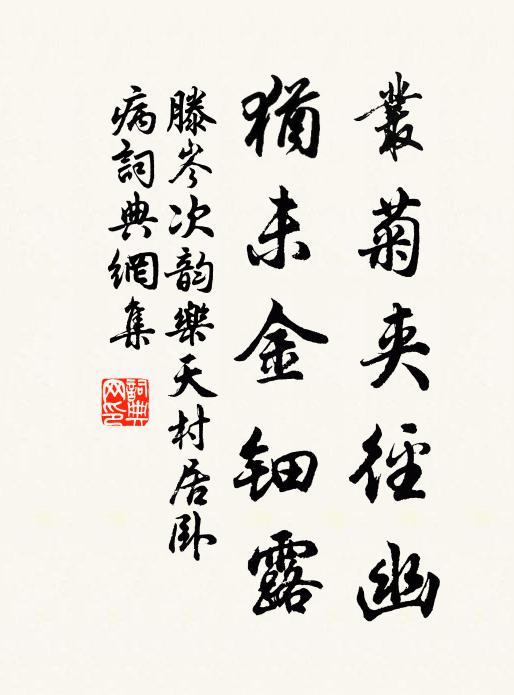 叢菊夾徑幽
猶未金鈿露
滕岑次韵樂天村居卧
病詞典網集
詞典網印